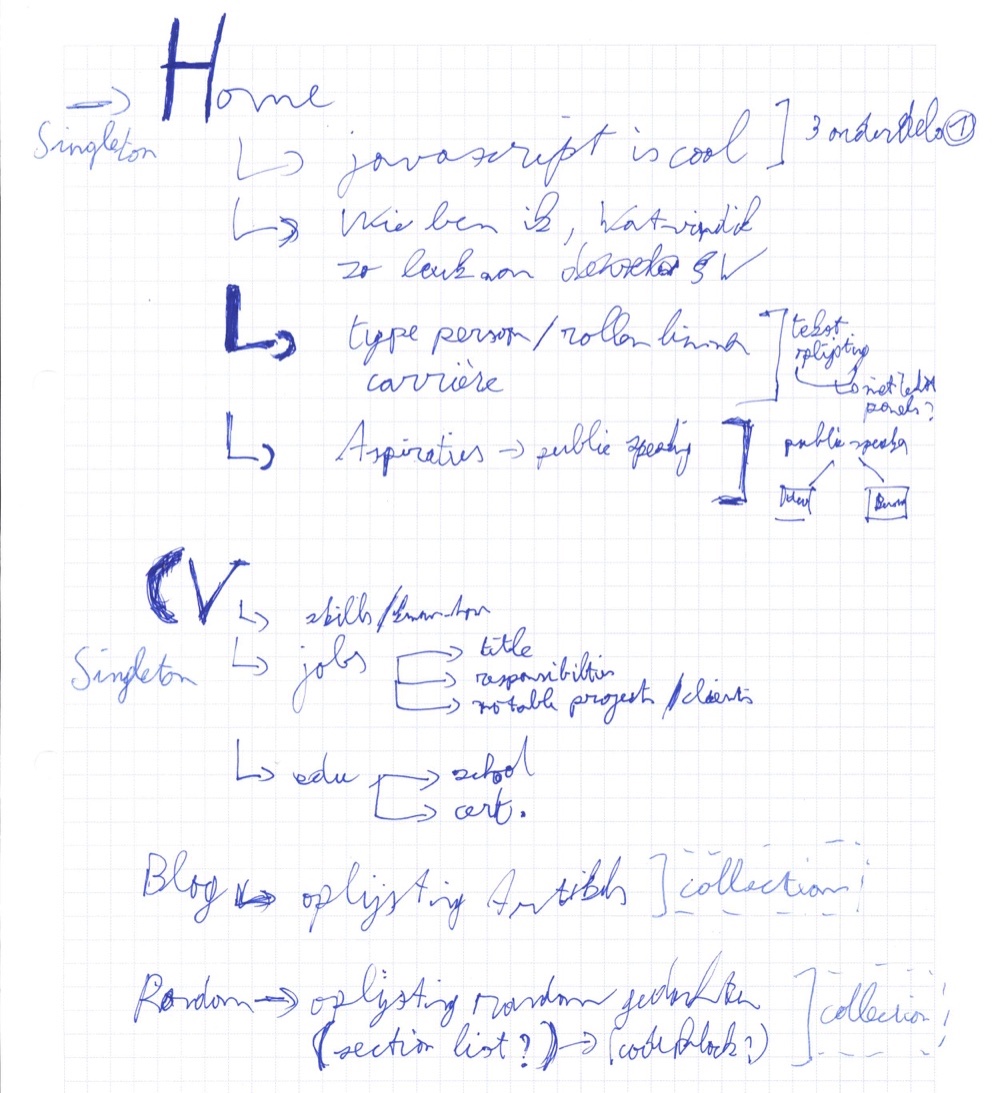 Home
Singleton
javascript is cool
3 onderdelen 1
Wie ben ik, Wat vind ik
zo leuk aan
type person/rollen binnen
carrière
tekst
oplijsting
met
panels?
Aspiraties → public speaking
public speaker
CV
skills/know-how
Singleton
jobs
title
responsibilities
notable projects/clients
edu
school
cert.
Blog → oplijsting Artikels
collection
Random → oplijsting random gedachten
collection
(section list?) → (codeblock?)